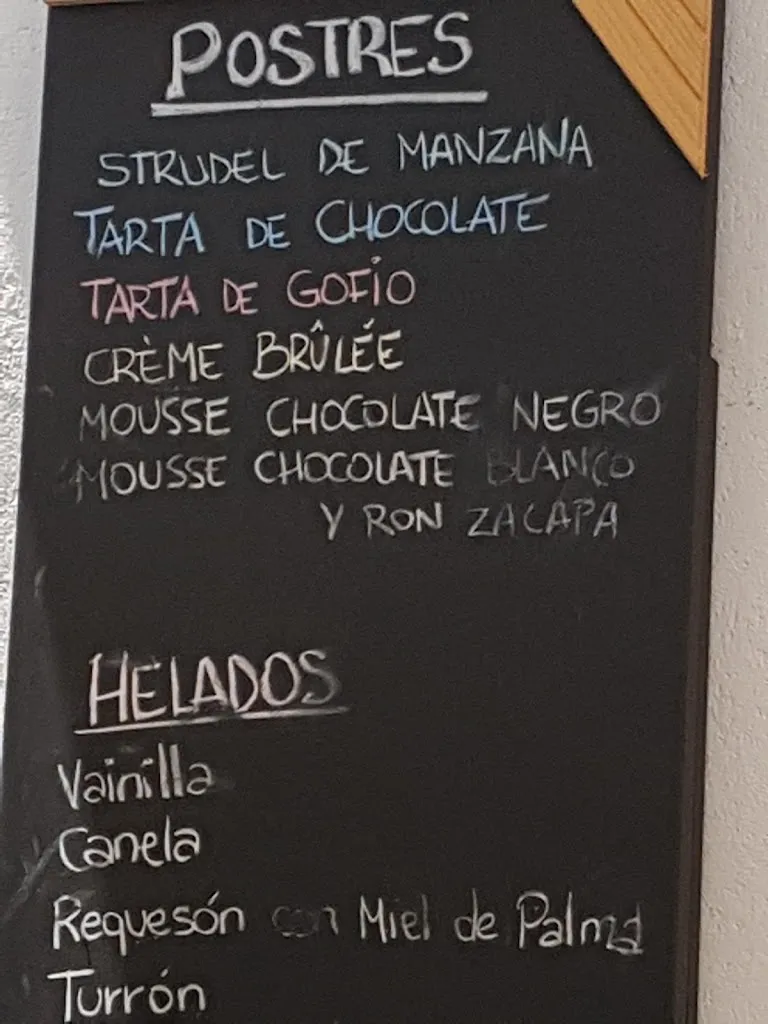 POSTRES
STRUDEL DE MANZANA
TARTA DE CHOCOLATE
TARTA DE GOFIO
CRÈME BRÛLÉE
MOUSSE CHOCOLATE NEGRO
MOUSSE CHOCOLATE BLANCO
Y RON ZACAPA
HELADOS
Vainilla
Canela
Requesón con Miel de Palma
Turrón